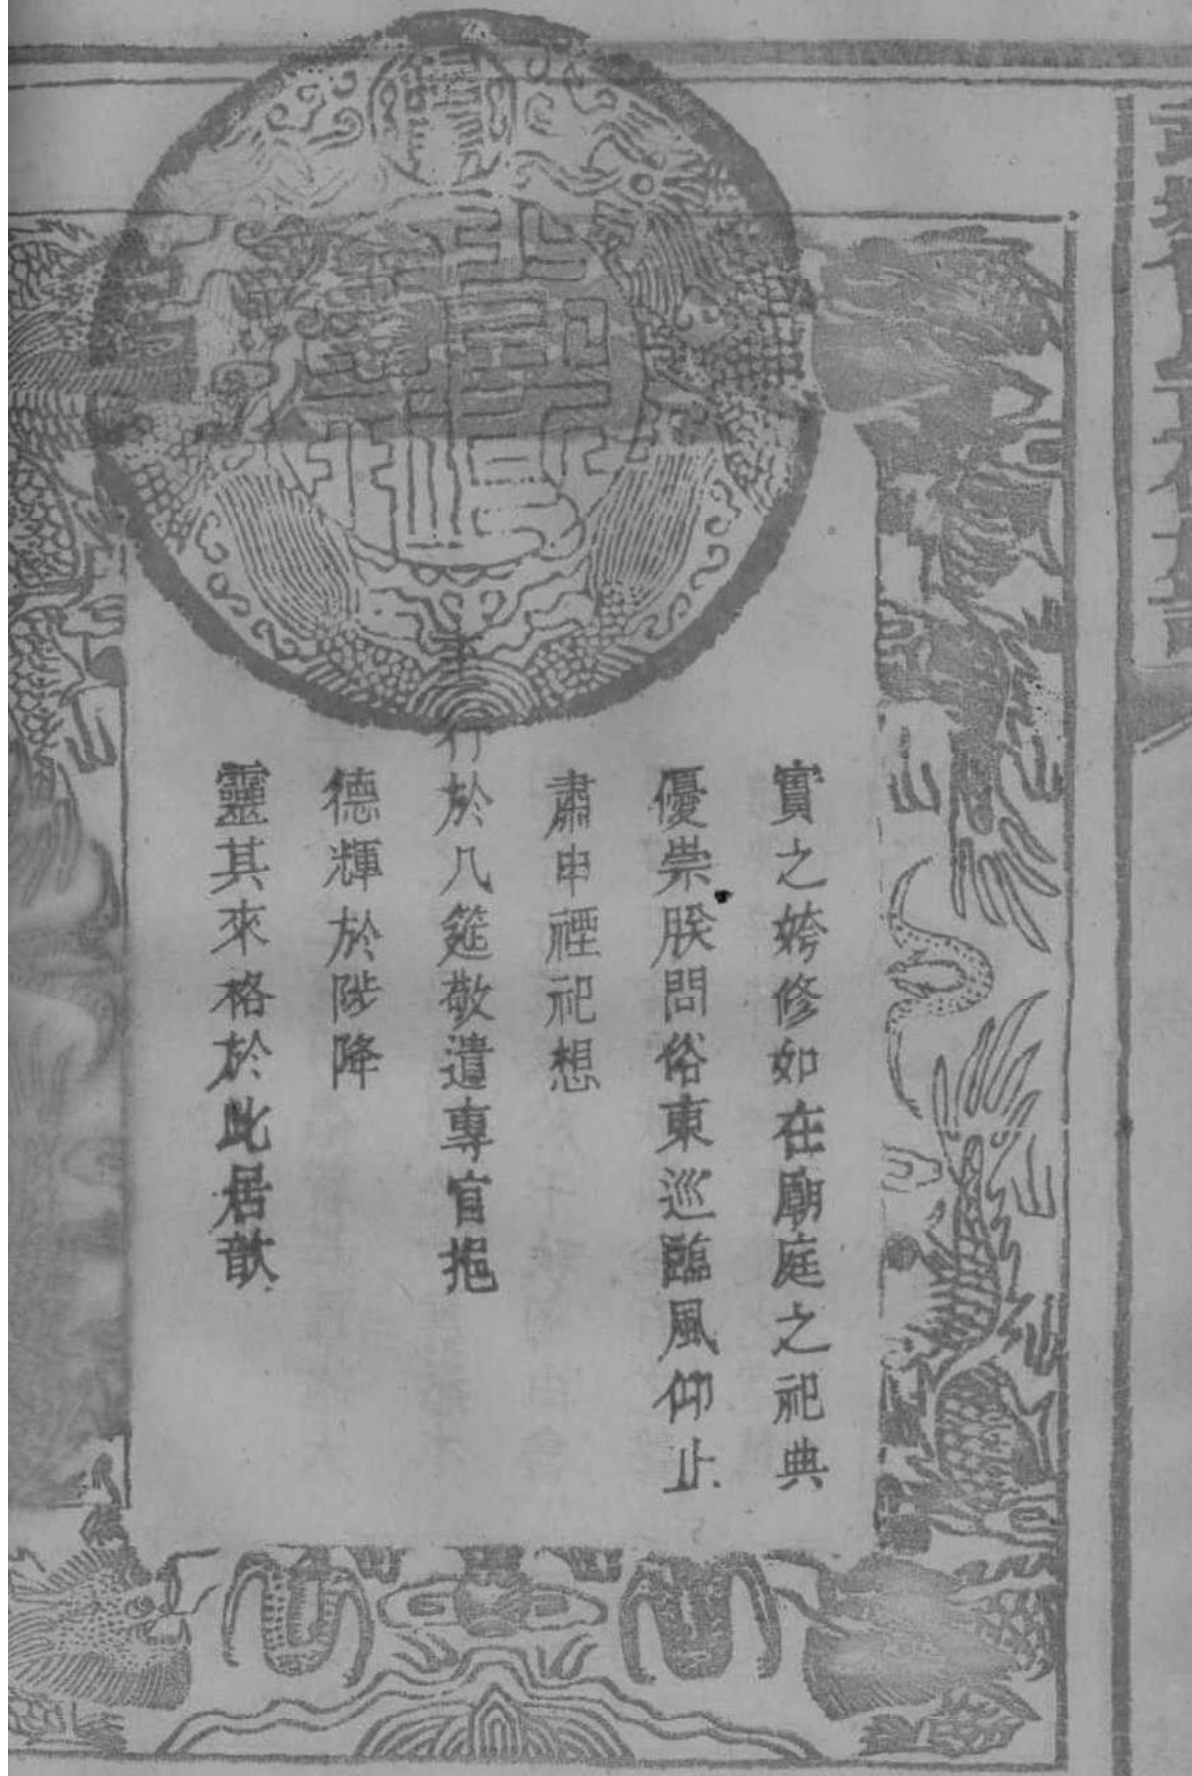 實之姱修如在廟庭之祀典
優崇朕問俗東巡臨風仰止
肅申禋祀想
行於几筵敬遣專官挹
德輝於陟降
靈其來格於此居歆